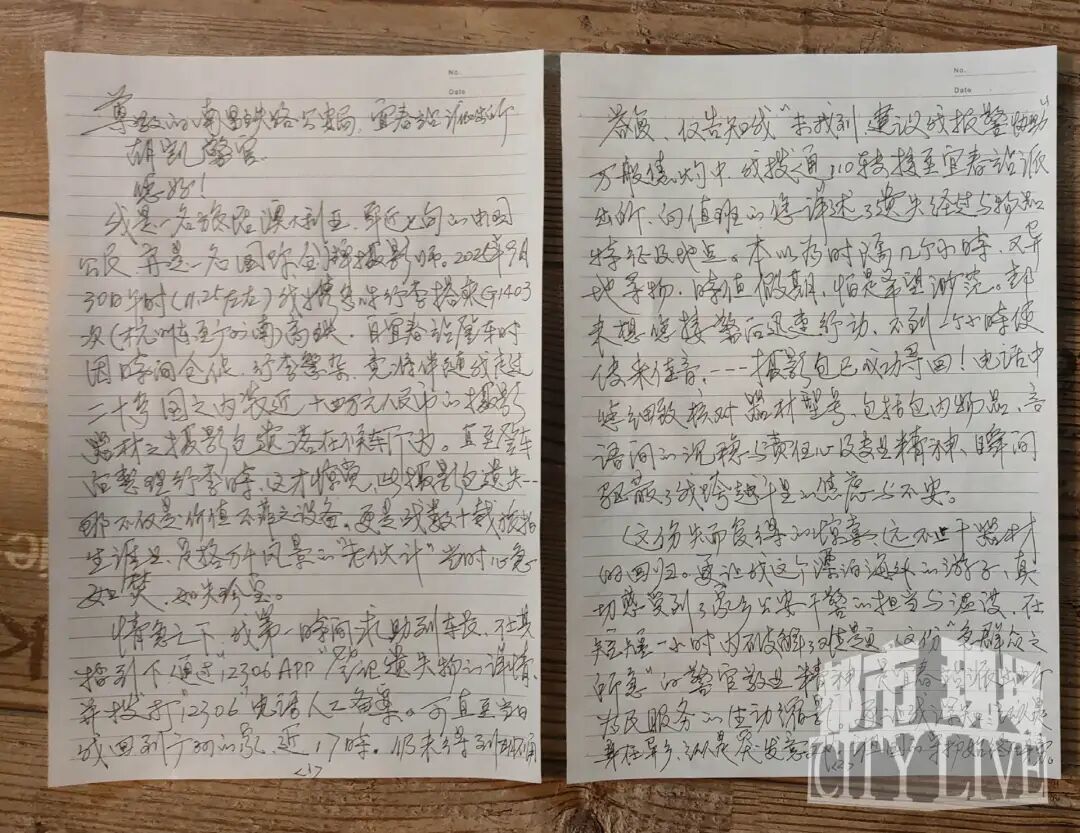 No.
Date
尊敬的南昌铁路公安局,宜春站派出所
胡凯警官
您好!
我是一名旅居澳大利亚,年近七旬的中国
公民,并是一名国际金牌摄影师。2025年9月
30日午时(11:25左右)我携多件行李搭乘G1403
次(杭州西至广州南)高铁,自宜春站登车时
因时间仓促,行李繁杂,竟将伴随我走过
二十多国之内装近十四万元人民币的摄影
器材之摄影包遗落在候车厅内。直至登车
后整理行李时,这才惊觉,此摄影包遗失…
那不仅是价值不菲之设备,更是我数十载旅拍
生涯里,定格万千风景的"老伙计"当时心急
如焚,如失珍宝。
情急之下,我第一时间求助列车长,在其
指引下通过"12306 APP"登记遗失物的详情,
并拨打"12306"电话人工备案。可直至当日
我回到广州的家,近17时,仍未得到明确
<1>
No.
Date
答复,仅告知我"未找到,建议我报警协助"
万般焦灼中,我拨通110转接至宜春站派
出所,向值班的您详述了遗失经过与物品
特征及地点。本以为时隔几个小时,又异
地寻物,时值假期,怕是希望渺茫。却
未想您接警后迅速行动,不到一个小时便
传来佳音,---摄影包已成功寻回!电话中
您细致核对器材型号,包括包内物品,言
语间的沉稳与责任心及敬业精神,瞬间
驱散了我跨越千里的焦虑与不安。
这份失而复得的惊喜,远不止于器材
的回归。更让我这个漂泊海外的游子,真
切感受到了家乡公安干警的担当与温度,在
短短一小时内破解了难题,这份"急群众之
所急"的警官敬业精神,是宜春站派出所
为民服务的生动缩影
<2>
都市现场
CITY LIVE